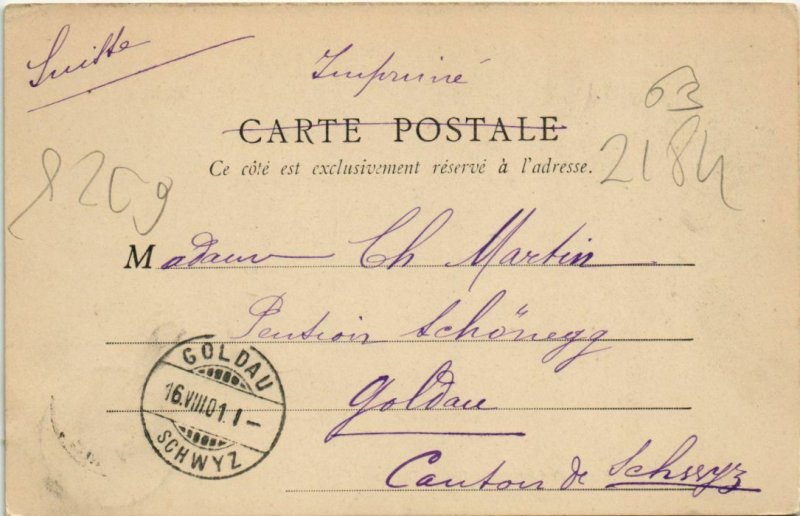 Suisse
Imprimé
63
CARTE POSTALE
2184
Ce côté est exclusivement réservé à l'adresse.
Madame Ch Martin
Pension Schönegg
GOLDAU
16.VIII.01.1-
SCHWYZ
Goldau
Canton de Schwyz